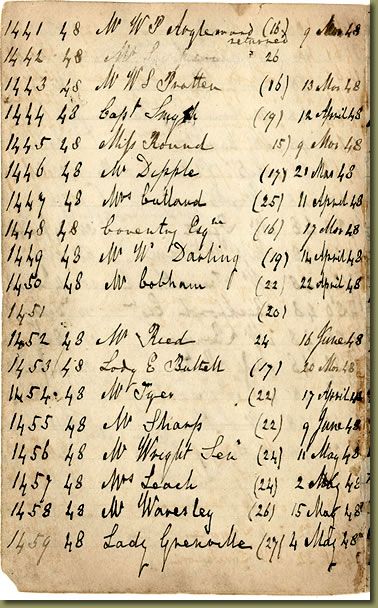 1441 48 Mr W P Anglewood (16) 9 Mar 48
returned
1442 48 Mr 26
1443 48 Mr W S Tratten (16) 13 Mar 48
1444 48 Capt Smyth (19) 12 April 48
1445 48 Miss Round 15) 9 Mar 48
1446 48 Mr Depple (17) 21 Mar 48
1447 48 Mrs Cutland (25) 11 April 48
1448 48 Coventry Esqre (16) 17 Mar 48
1449 48 Mr W Darling (19) 14 April 48
1450 48 Mr Cobham (22) 22 April 48
1451 (20)
1452 48 Mr Reed 24 16 June 48
1453 48 Lady E (17) 20 Mar 48
1454 48 Mr Tyer (22) 17 April 48
1455 48 Mr Sharp (22) 9 June 48
1456 48 Mr Wright Senr (24) 11 May 48
1457 48 Mrs Leach (24) 2 May 48
1458 48 Mr Waverley (26) 15 May 48
1459 48 Lady Grenville (27) 4 May 48